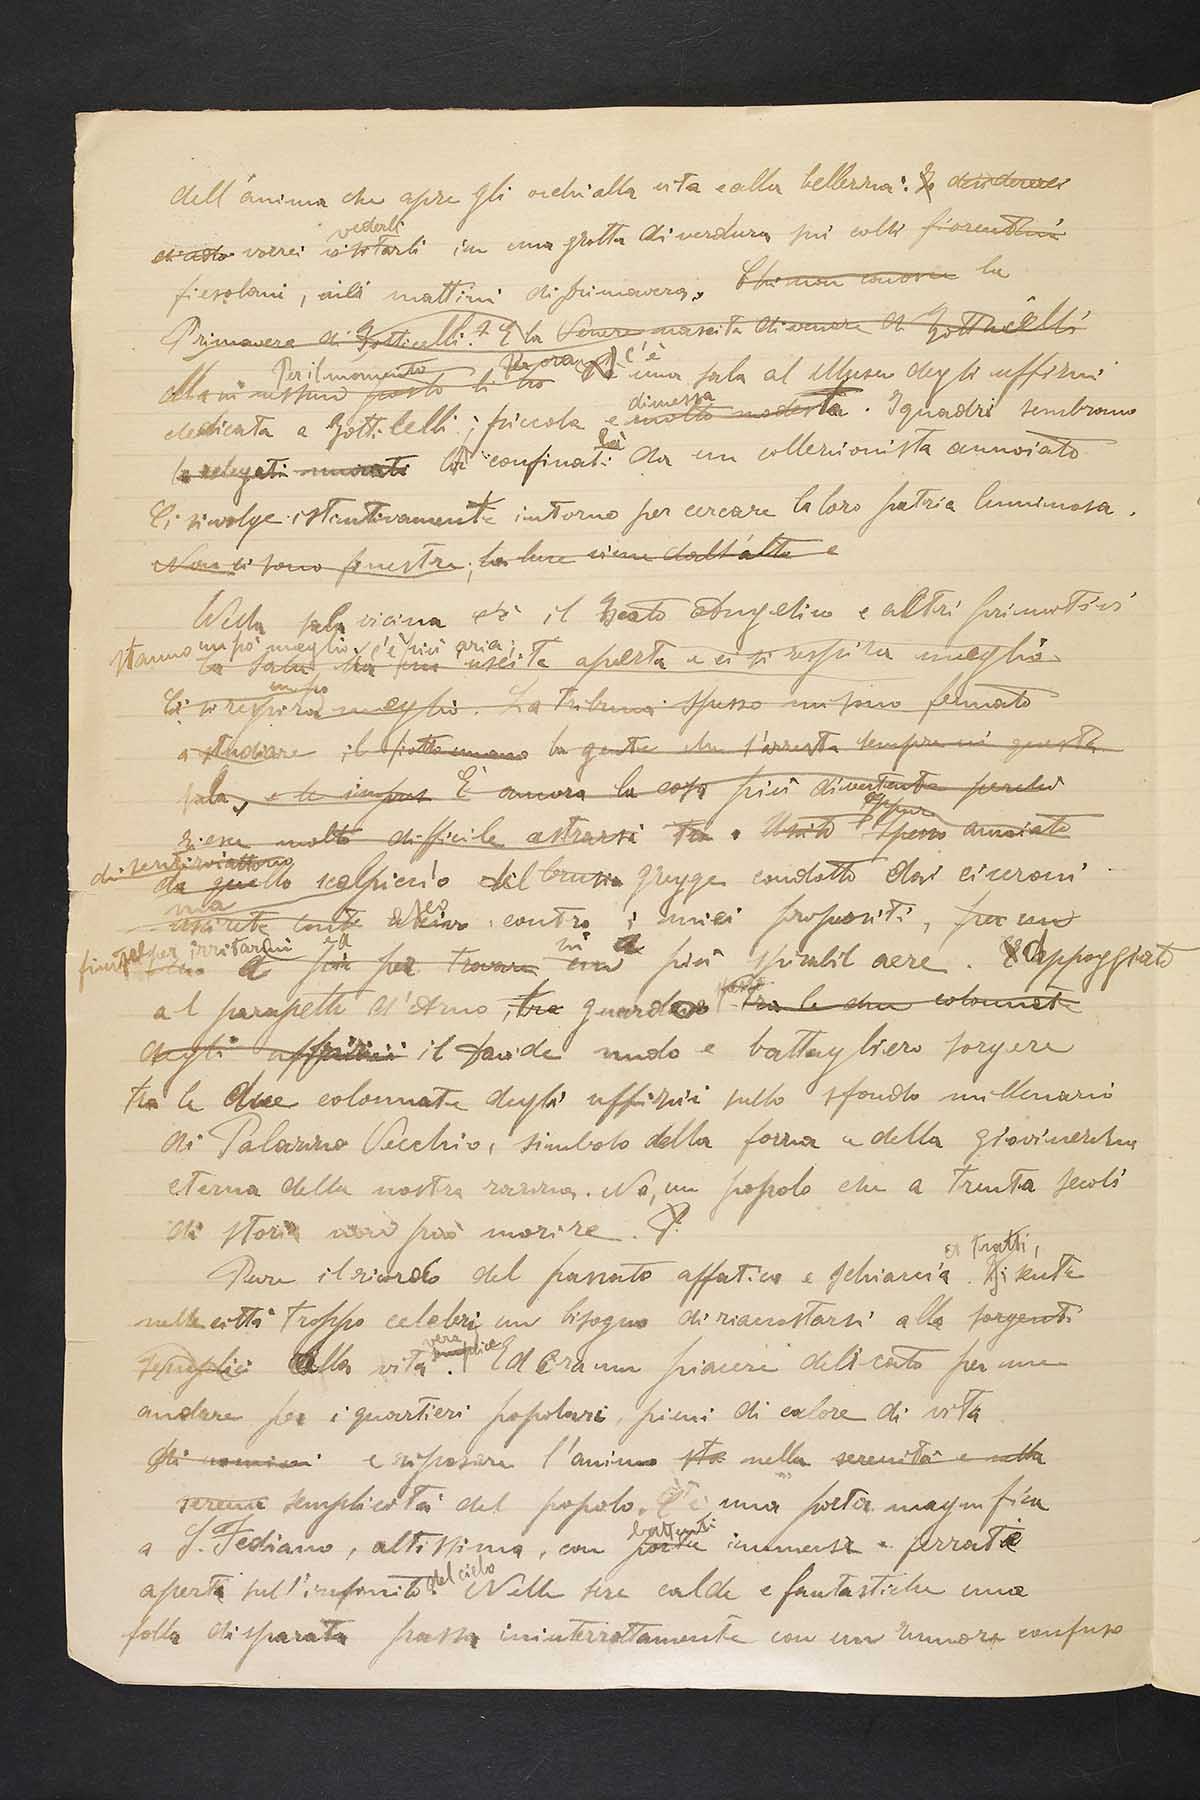 dell'anima che apre gli occhi alla vita e alla bellezza. Io desidererei
vorrei visitarli vederli in una grotta di verdura sui colli fiorentini
fiesolani, nei mattini di primavera. Chi non conosce la
Primavera di Botticelli? E la Venere nascita di venere di Botticelli
Per il momento Per ora c'è una sala al Museo degli uffizzi
dedicata a Botticelli, piccola e molto modesta dimessa. I quadri sembrano
relegati murati là confinati da un collezionista annoiato
Ci si volge istintivamente intorno per cercare la loro patria luminosa.
Non ci sono finestre, la luce viene dall'alto e
Nella sala vicina c'è il Beato Angelico e altri primitivi
stanno un po' meglio, c'è più aria,
la sala ha una uscita aperta e ci si respira meglio
un po'
Ci si respira meglio. La tribuna. Spesso mi sono fermato
a studiare il la gente che s'arresta sempre in questa
sala, È ancora la cosa più divertente perché
riesce molto difficile astrarsi spesso annoiato
da quello scalpiccio del gregge condotto dai ciceroni
ma
contro i miei propositi, per un
per irritarmi per trovare più spirabil aere. Appoggiato
al parapetto d'Arno, guardo tra le due colonnate
degli uffizii il Davide nudo e battagliero sorgere
tra le due colonnate degli uffizii sullo sfondo millenario
di Palazzo Vecchio, simbolo della forza e della giovinezza
eterna della nostra razza. No, un popolo che a trenta secoli
di storia non può morire.
Pure il ricordo del passato affatica e schiaccia. Si sente a tratti,
nelle città troppo celebri un bisogno di riaccostarsi alle sorgenti
semplici della vita vera semplice. Ed era un piacere delicato per me
andare per i quartieri popolari, pieni di calore di vita
di uomini e riposare l'animo nella serenità e nella
serena semplicità del popolo. C'è una porta magnifica
a S. Frediano, altissima, con porte battenti immense e ferrate
aperta sull'infinito del cielo. Nelle sere calde e fantastiche una
folla disparata passa ininterrottamente con un rumore confuso